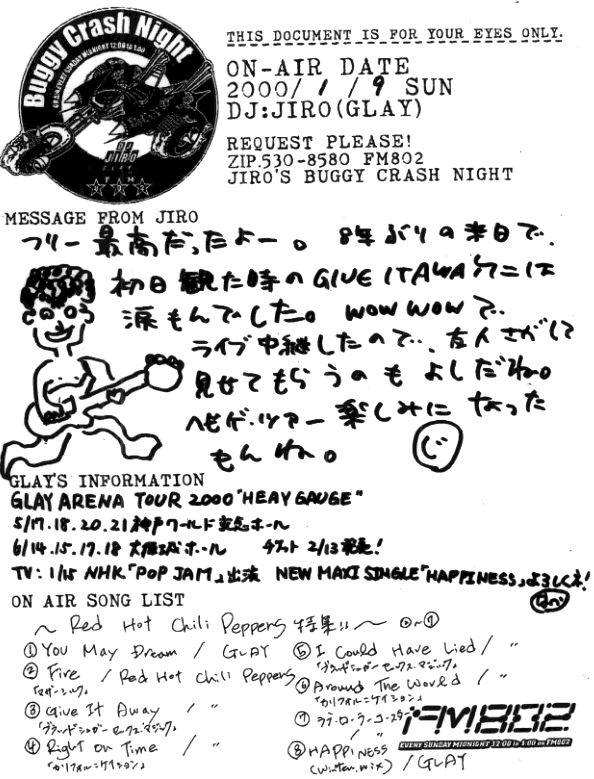 Buggy Crash Night
EVERY SUNDAY MIDNIGHT 12:00 to 1:00
THIS DOCUMENT IS FOR YOUR EYES ONLY.
ON-AIR DATE
2000/1/9 SUN
DJ:JIRO(GLAY)
REQUEST PLEASE!
ZIP.530-8580 FM802
JIRO'S BUGGY CRASH NIGHT
JIRO
802
MESSAGE FROM JIRO
フリー最高だったよー。8年ぶりの来日で、
初日観た時のGIVE IT AWAYには
涙もんでした。WOWWOWで
ライブ中継したので、友人さがして
見せてもらうのもよしだね。
ヘビゲ・ツアー楽しみになった
もんね。 じ
GLAY'S INFORMATION
GLAY ARENA TOUR 2000 "HEAVY GAUGE"
5/17.18.20.21 神戸ワールド記念ホール
6/14.15.17.18 大阪城ホール チケット 2/13発売!
TV:1/15 NHK「POP JAM」出演 NEW MAXI SINGLE「HAPPINESS」よろしくネ!
ON AIR SONG LIST
〜 Red Hot Chili Peppers 特集!! 〜 ②〜⑦
① You May Dream / GLAY
② Fire / Red Hot Chili Peppers
「マザーシルク」
③ Give It Away / 〃
「ブラッドシュガーセックスマジック」
④ Right On Time / 〃
「カリフォルニケイション」
⑤ I Could Have Lied / 〃
「ブラッドシュガーセックスマジック」
⑥ Around The World / 〃
「カリフォルニケイション」
⑦ ラブ・ローラーコースター
/ 〃
⑧ HAPPINESS
(winter mix) / GLAY
FM802
EVERY SUNDAY MIDNIGHT 12:00 to 1:00 on FM802